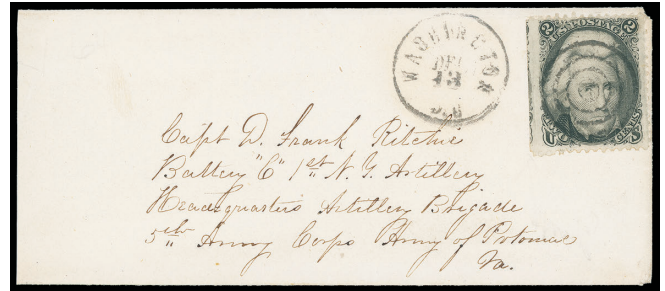 WASHINGTON
DEC
13
D.C.
2 U.S. POSTAGE 2
TWO CENTS
Capt D. Frank Ritchie
Battery "C" 1st N. Y. Artillery
Head-quarters Artillery Brigade
5th Army Corps Army of Potomac
Va.